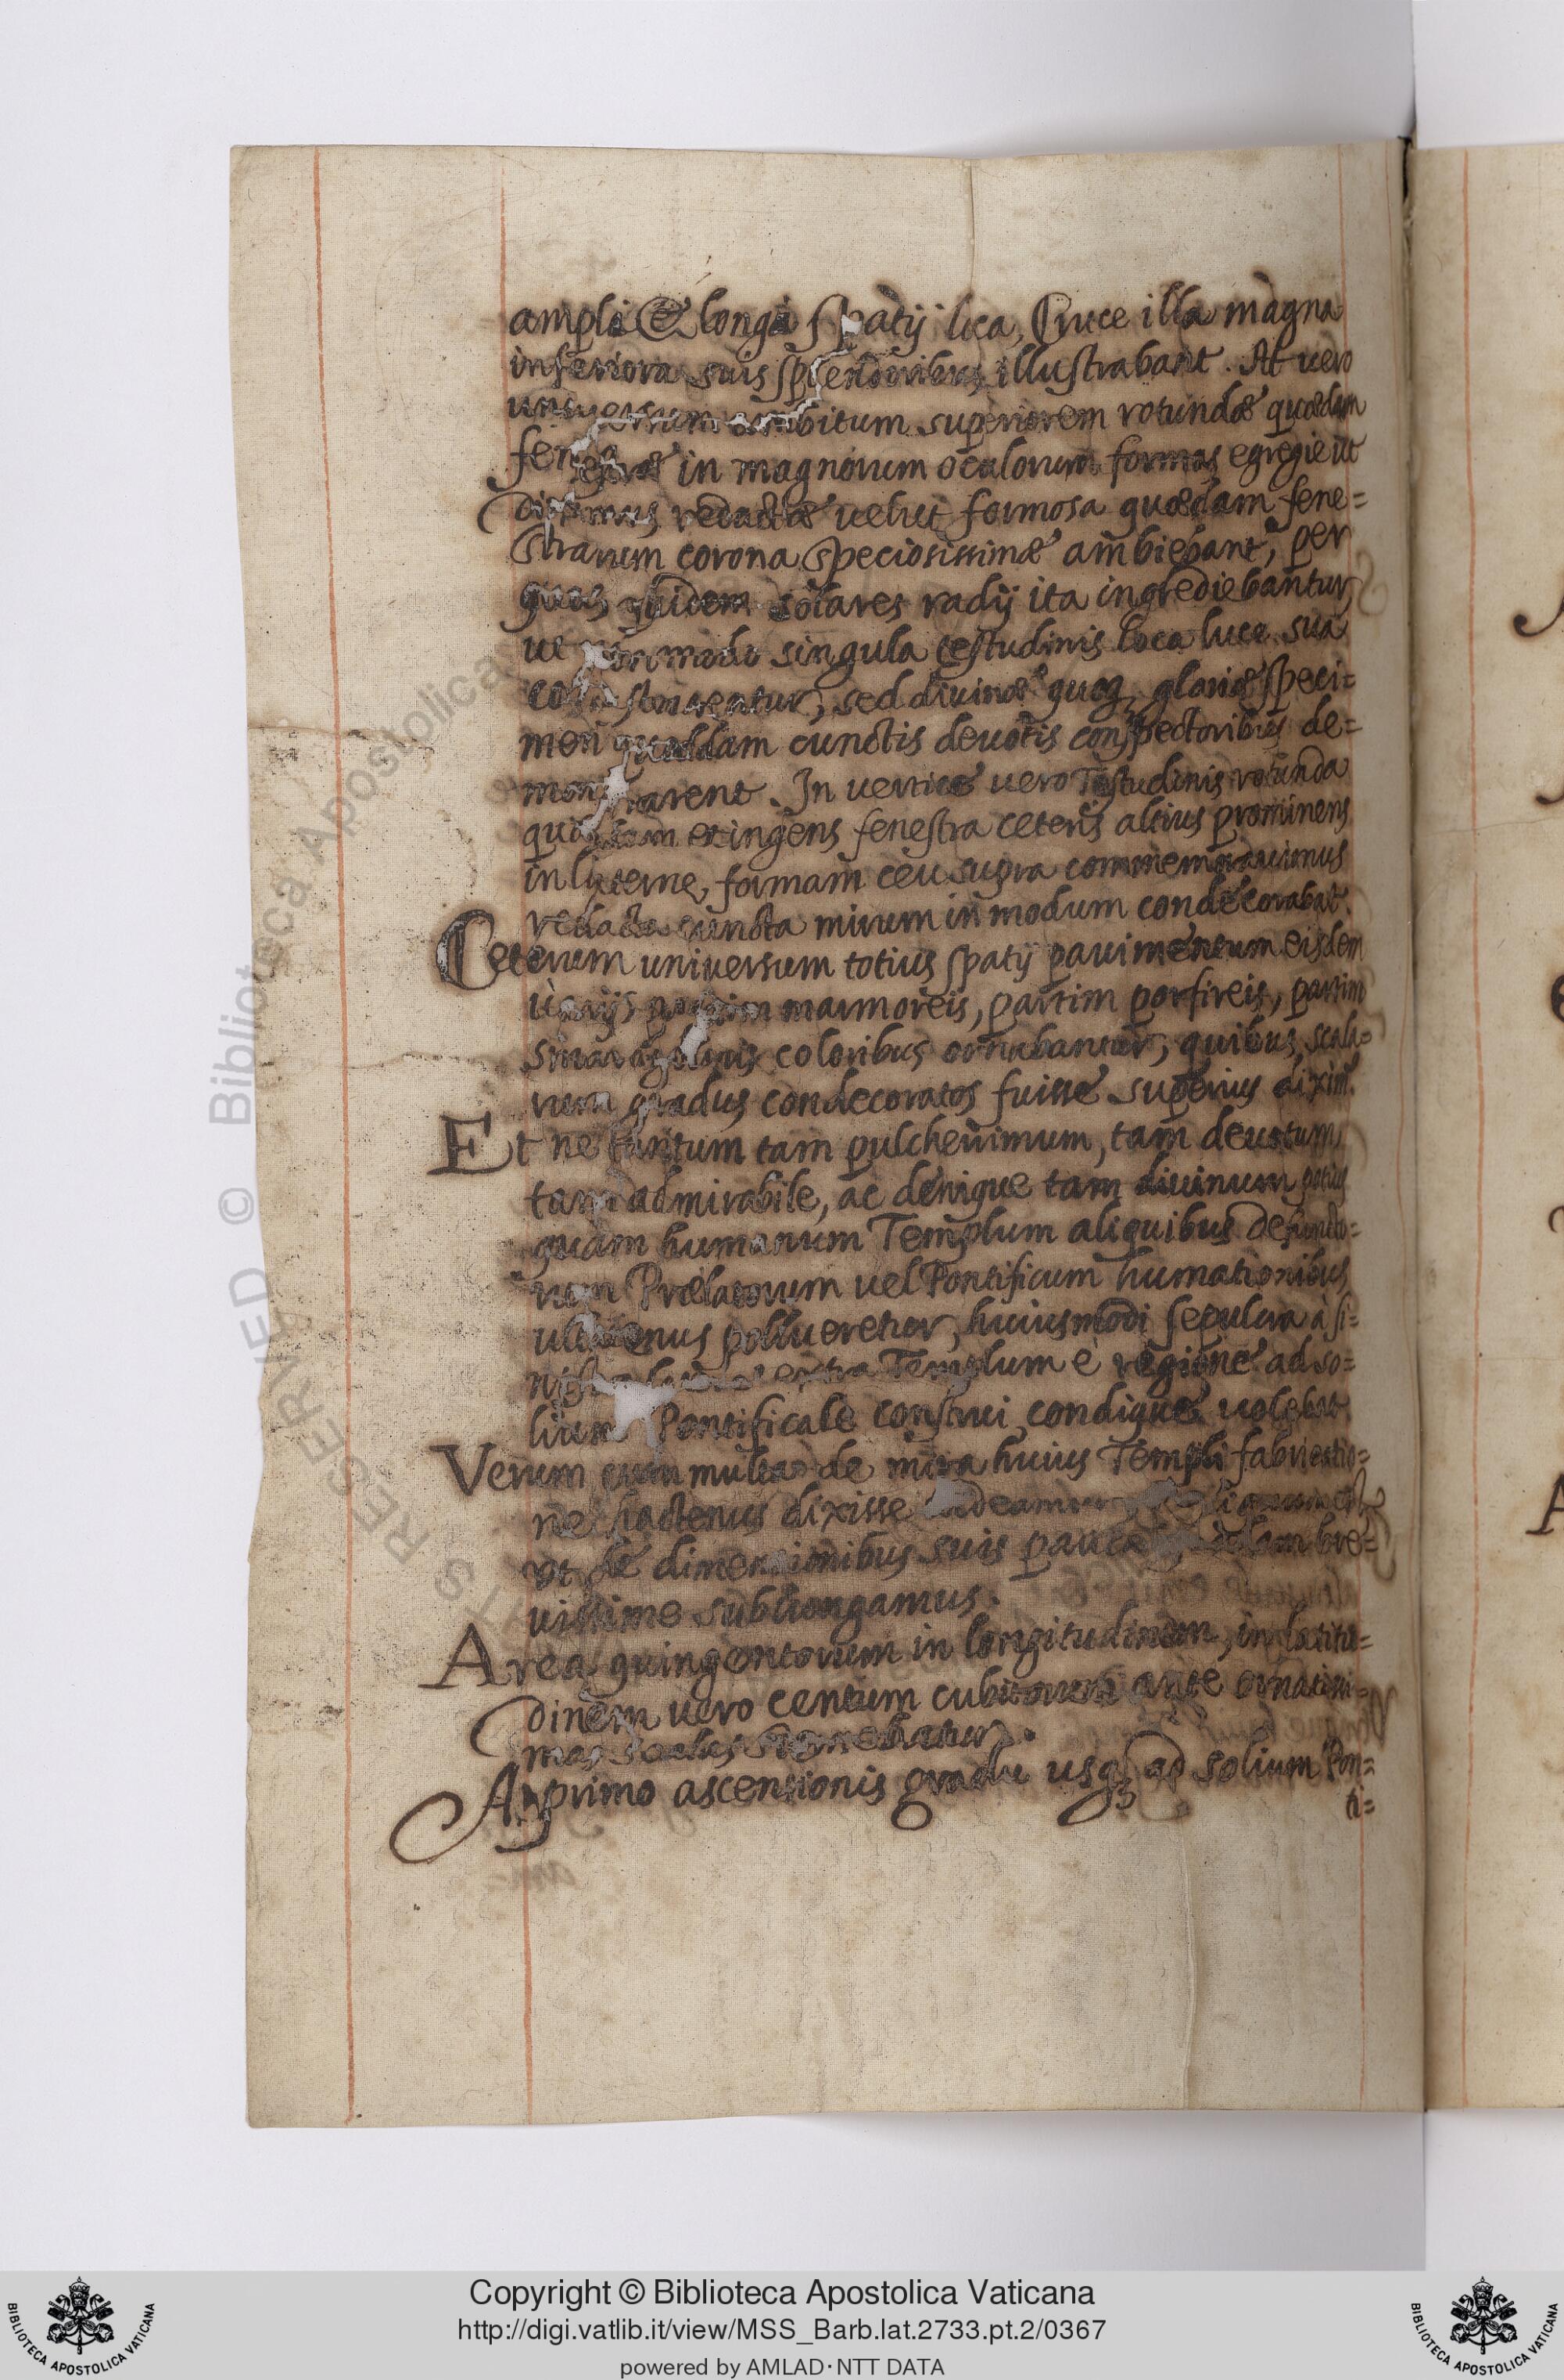 ampli & longi spatij loca, Cruce illa magna
inferiora suis splendoribus illustrabant. At vero
universum ambitum superiorem rotundæ quædam
fenestræ in magnorum oculorum formas egregie ut
diximus redactæ velut formosa quædam fene=
strarum corona speciosissimæ ambiebant, per
quas quidem solares radij ita ingrediebantur
ut non modo singula testudinis loca luce sua
collustrarentur, sed divinæ quoq gloriæ speci=
men quoddam cunctis devotis conspectoribus de=
monstrarent. In vertice vero Testudinis rotunda
quædam et ingens fenestra ceteris altius prominens
in lucerne, formam ceu supra commemoravimus
redacta cuncta mirum in modum condecorabat.
Ceterum universum totius spatij pavimentum eisdem
varijs partim marmoreis, partim porfireis, partim
smaragdinis coloribus ornabantur, quibus scala=
rum gradus condecoratos fuisse superius dixim.
Et ne tantum tam pulcherrimum, tam devotum
tam admirabile, ac denique tam divinum potius
quam humanum Templum aliquibus defuncto=
rum Prælatorum vel Pontificum humationibus
ullatenus pollueretur, huiusmodi sepulcra à si=
nistro latere extra Templum è regione ad so=
lium Pontificale construi, condique volebat.
Verum cum multa de mira huius Templi fabricatio=
ne hactenus dixisse videamur
vt de dimensionibus suis pauca quædam bre=
vissime subiiungamus.
Area quingentorum in longitudinem, in latitu=
dinem vero centum cubitorum ante ornatissi=
mas scalas
A primo ascensionis gradu usq ad solium Pon=
ti=
Copyright © Biblioteca Apostolica Vaticana
http://digi.vatlib.it/view/MSS_Barb.lat.2733.pt.2/0367
powered by AMLAD·NTT DATA
BIBLIOTECA APOSTOLICA VATICANA
BIBLIOTECA APOSTOLICA VATICANA